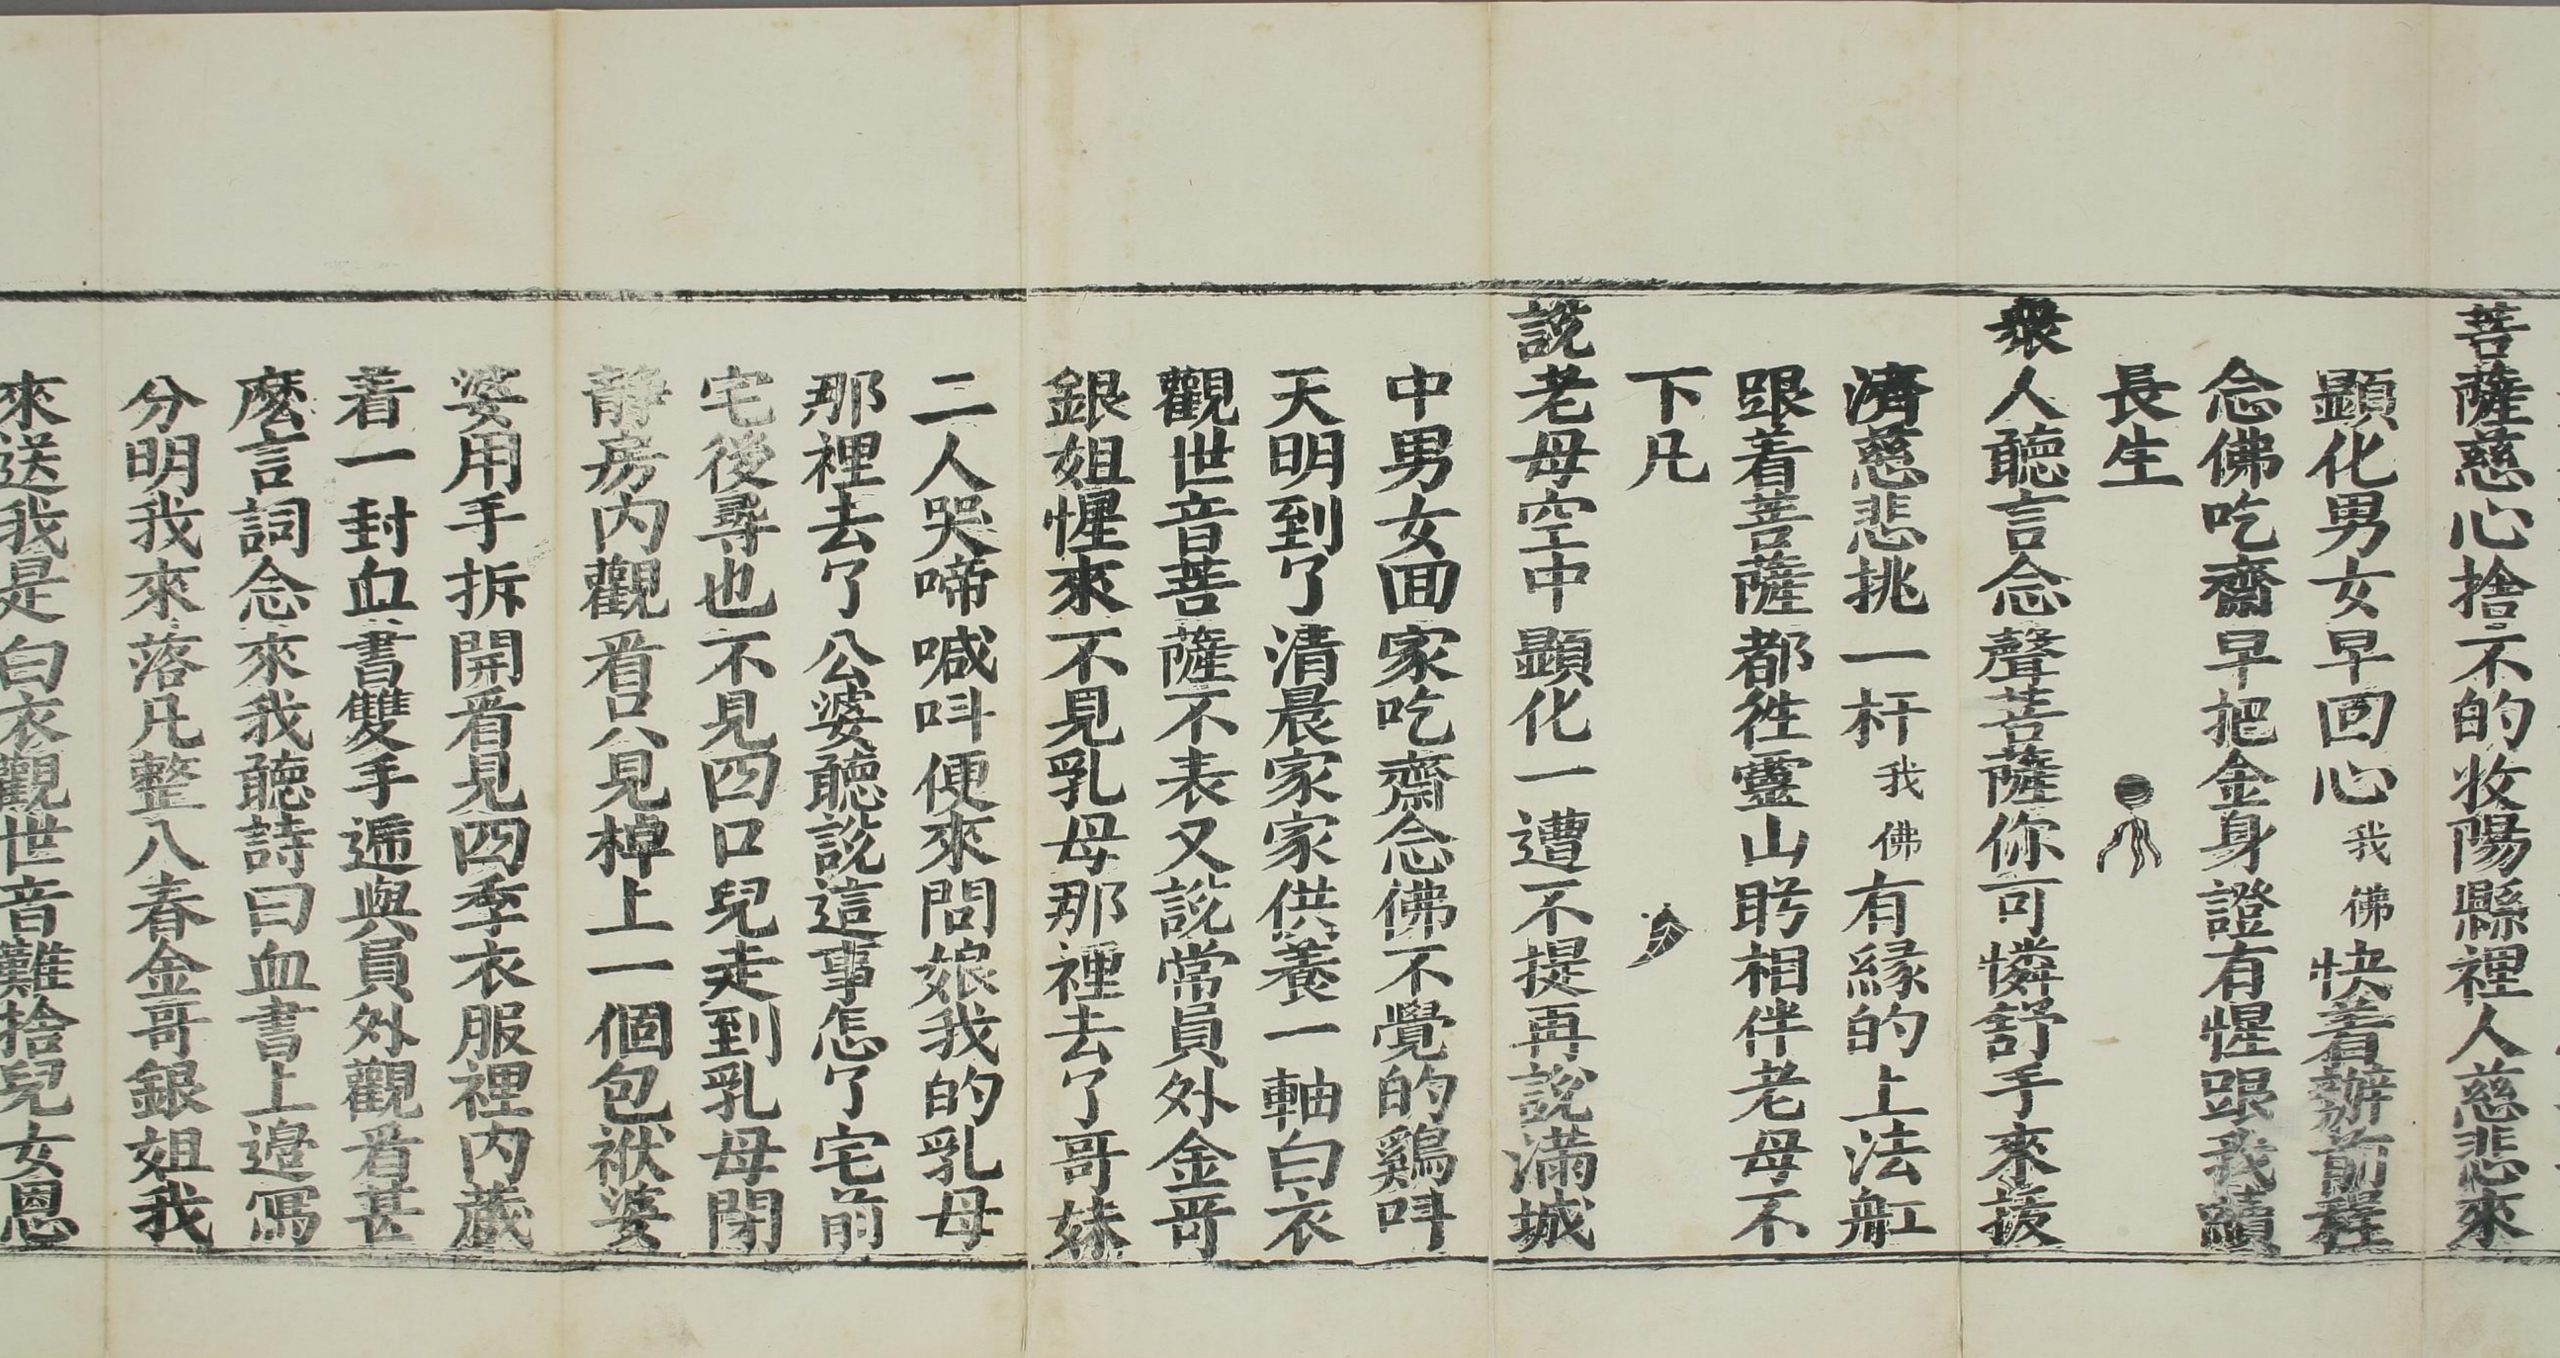 菩薩慈心捨不的收陽縣裡人慈悲來
顯化男女早回心我佛快着辦前程
念佛吃齋早把金身證有惺跟我續
長生
衆人聽言念聲菩薩你可憐舒手來拔
濟慈悲挑一杆我佛有緣的上法舡
跟着菩薩都徃靈山盻相伴老母不
下凡
說老母空中顯化一遭不提再說滿城
中男女回家吃齋念佛不覺的鷄呌
天明到了清晨家家供養一軸白衣
觀世音菩薩不表又說常員外金哥
銀姐惺來不見乳母那裡去了哥妹
二人哭啼喊呌便來問娘我的乳母
那裡去了公婆聽說這事怎了宅前
宅後尋也不見四口兒走到乳母閉
靜房內觀看只見棹上一個包袱婆
婆用手拆開看見四季衣服裡内藏
着一封血書雙手遞與員外觀看甚
麽言詞念來我聽詩曰血書上邉寫
分明我來落凡整八春金哥銀姐我
來送我是白衣觀世音難捨兒女恩